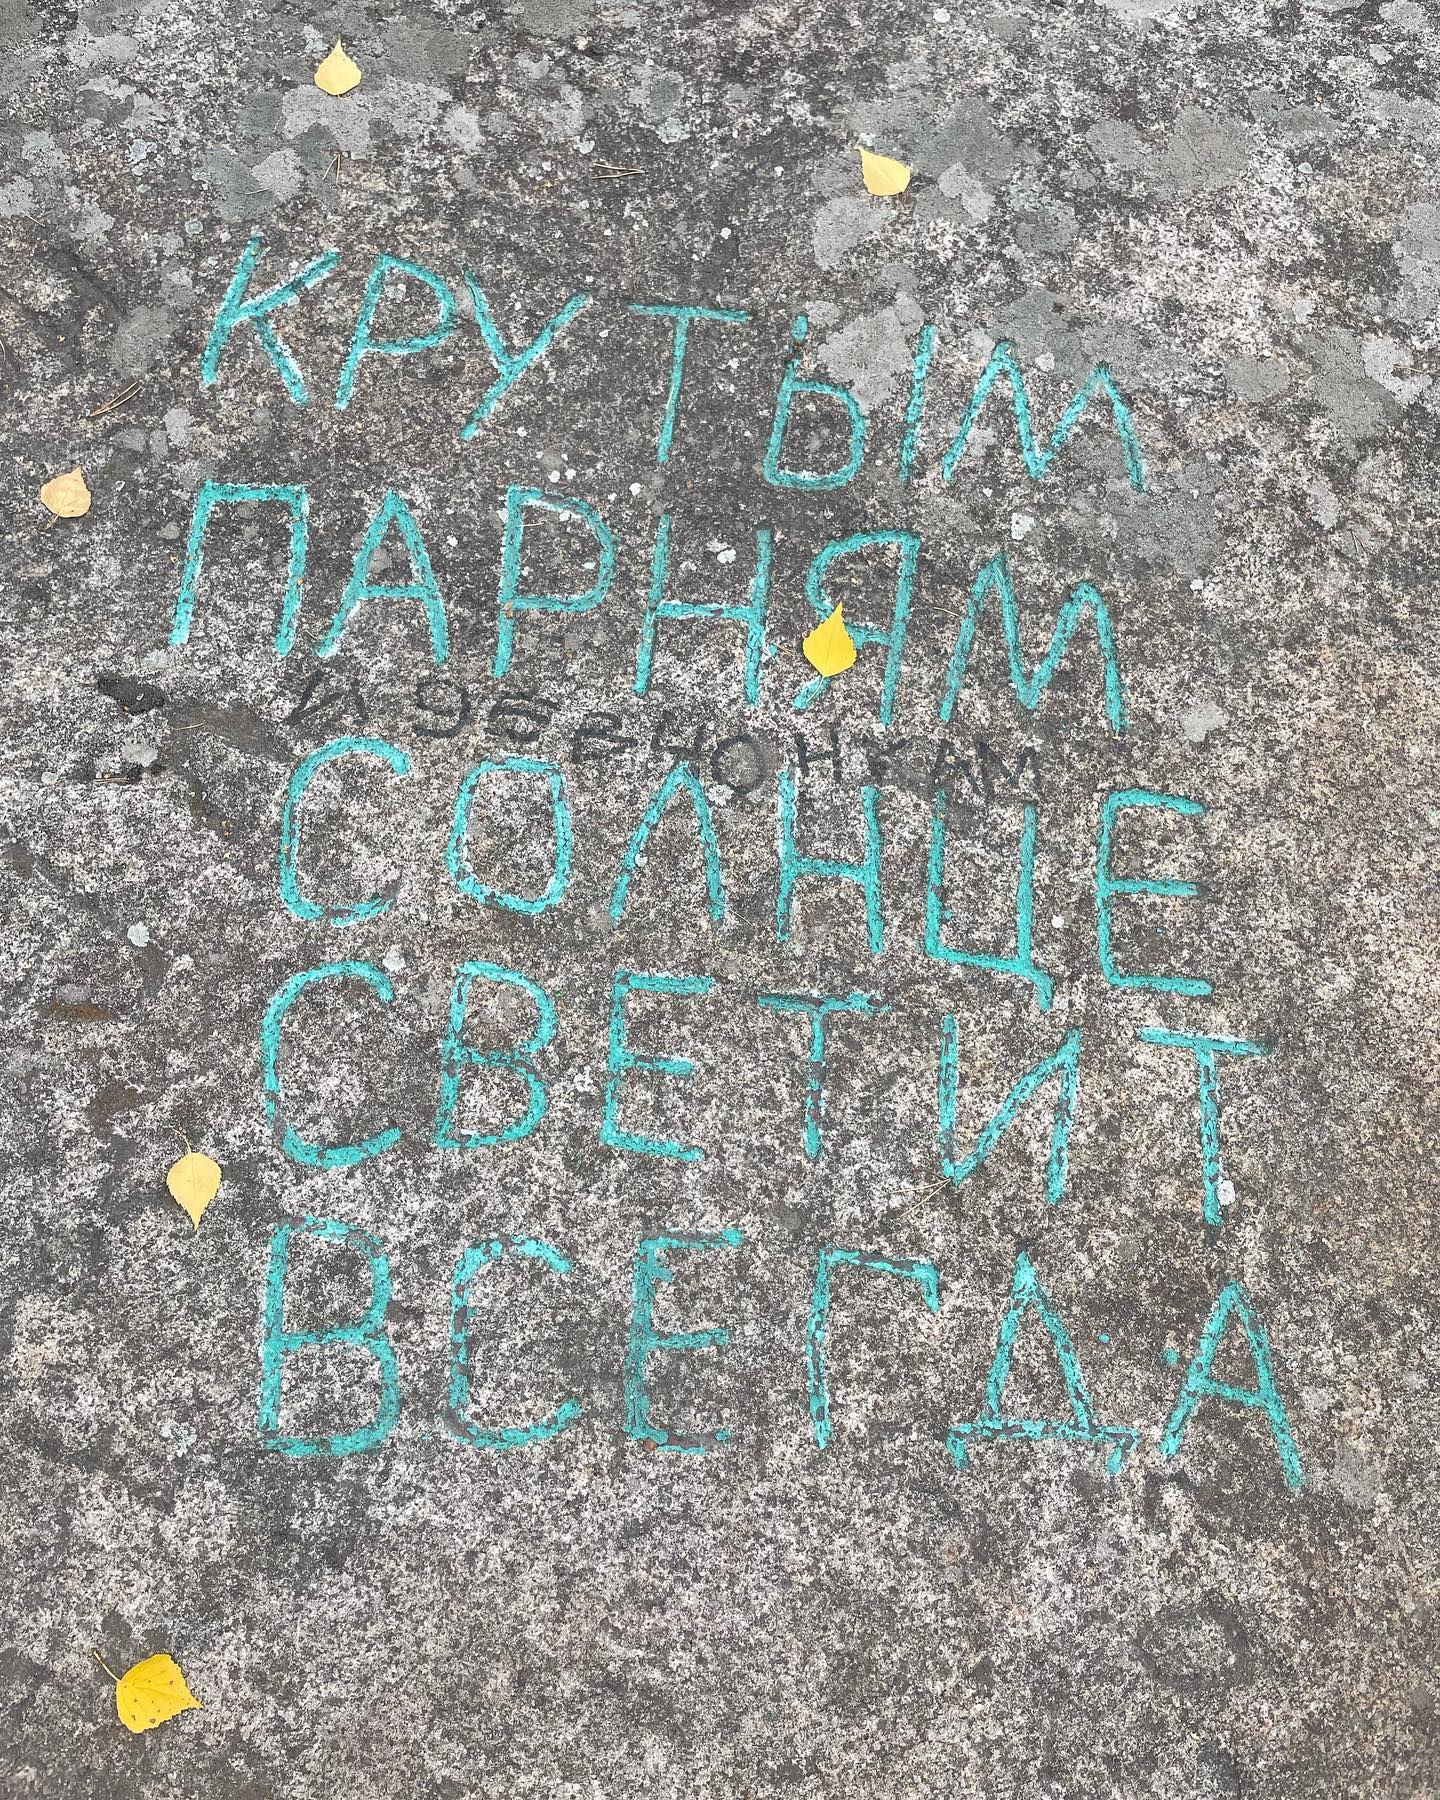 КРУТЫМ
ПАРНЯМ
и девчонкам
СОЛНЦЕ
СВЕТИТ
ВСЕГДА